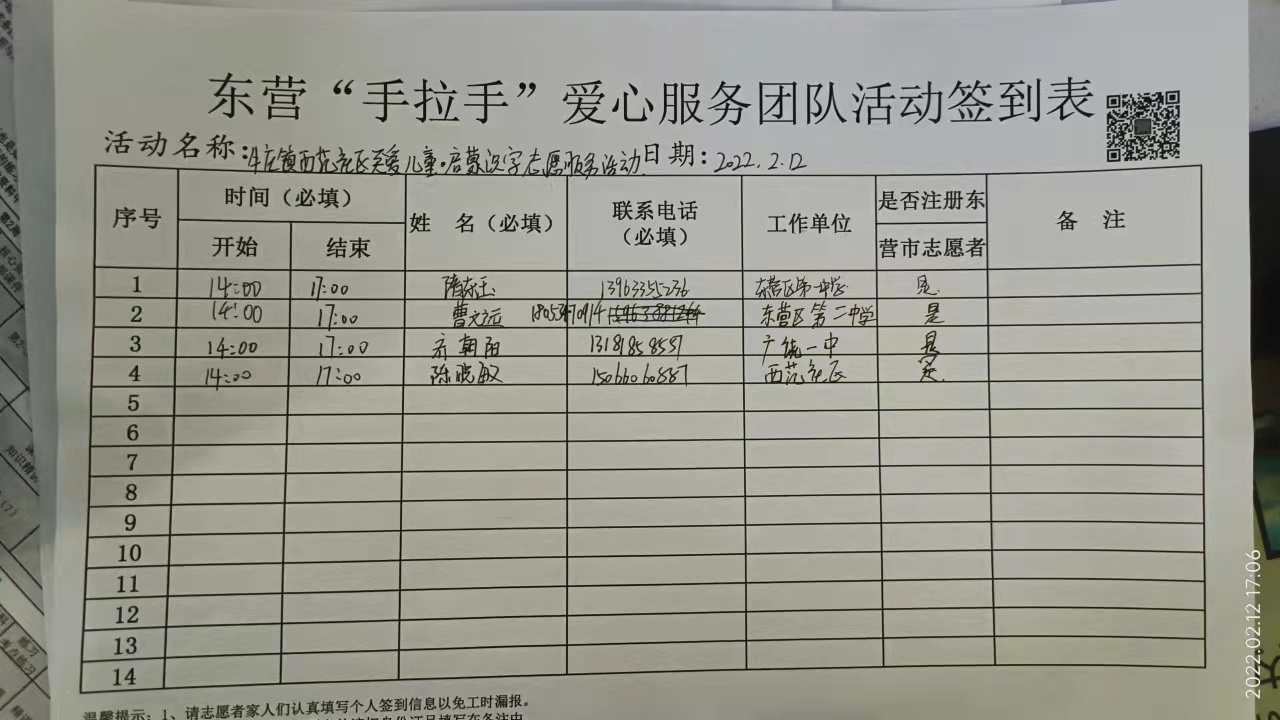 东营“手拉手”爱心服务团队活动签到表
活动名称：牛庄镇西范社区关爱儿童·启蒙识字志愿服务活动 日期：2022.2.12
序号 时间（必填） 姓 名（必填） 联系电话（必填） 工作单位 是否注册东营市志愿者 备 注
开始 结束
1 14:00 17:00 隋东玉 13963355236 东营区第一中学 是
2 14:00 17:00 曹文远 18053470914 东营区第二中学 是
3 14:00 17:00 齐朝阳 13181858557 广饶一中 是
4 14:00 17:00 陈晓敏 15066060887 西范社区 是
5
6
7
8
9
10
11
12
13
14
温馨提示：1、请志愿者家人们认真填写个人签到信息以免工时漏报。
2022.02.12 17:06